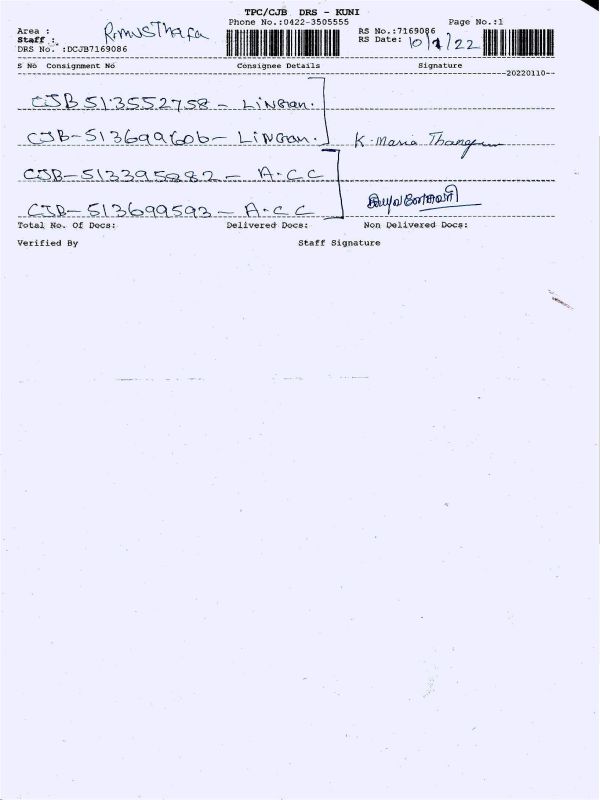 TPC/CJB DRS - KUNI
Phone No.:0422-3505555 Page No.:1
Area :
Staff : R.MUSThafa
DRS No. :DCJB7169086
RS No.:7169086
RS Date: 10/1/22
S No Consignment No Consignee Details Signature
20220110
CJB 513552758 - LiNGan.
CJB-513699606 - LiNGan. K. Maria
CJB-513395282 - A.C.C
CJB-513699593 - A.C.C
Total No. Of Docs: Delivered Docs: Non Delivered Docs:
Verified By Staff Signature